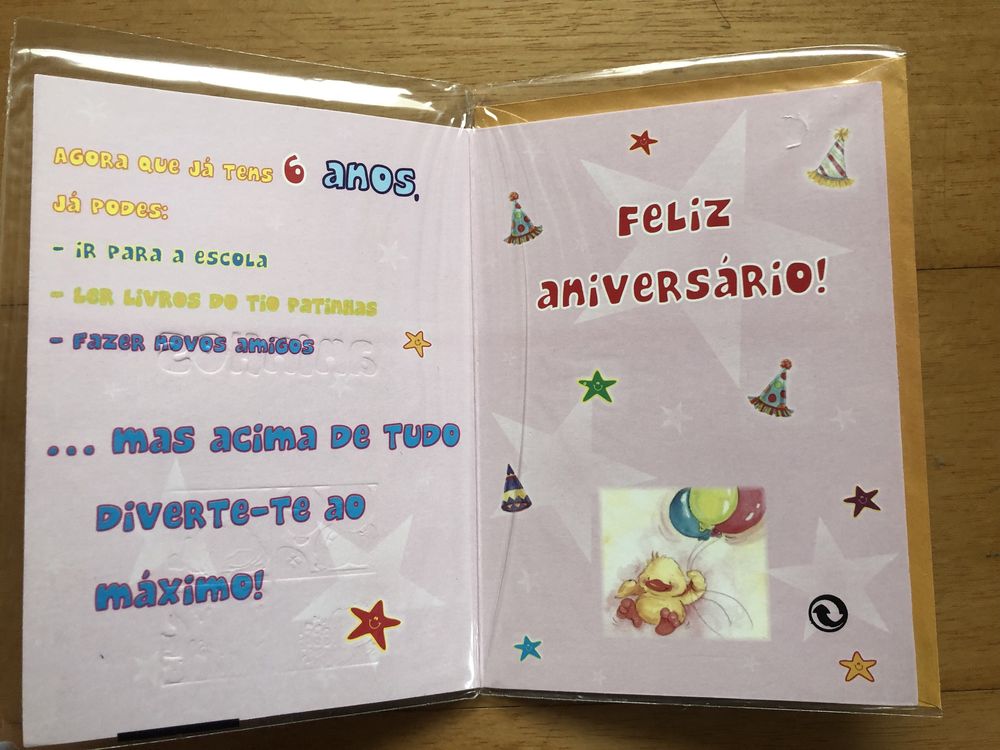 Agora que já tens 6 anos,
já podes:
- ir para a escola
- ler livros do tio patinhas
- fazer novos amigos
... mas acima de tudo
diverte-te ao
máximo!
Feliz
aniversário!